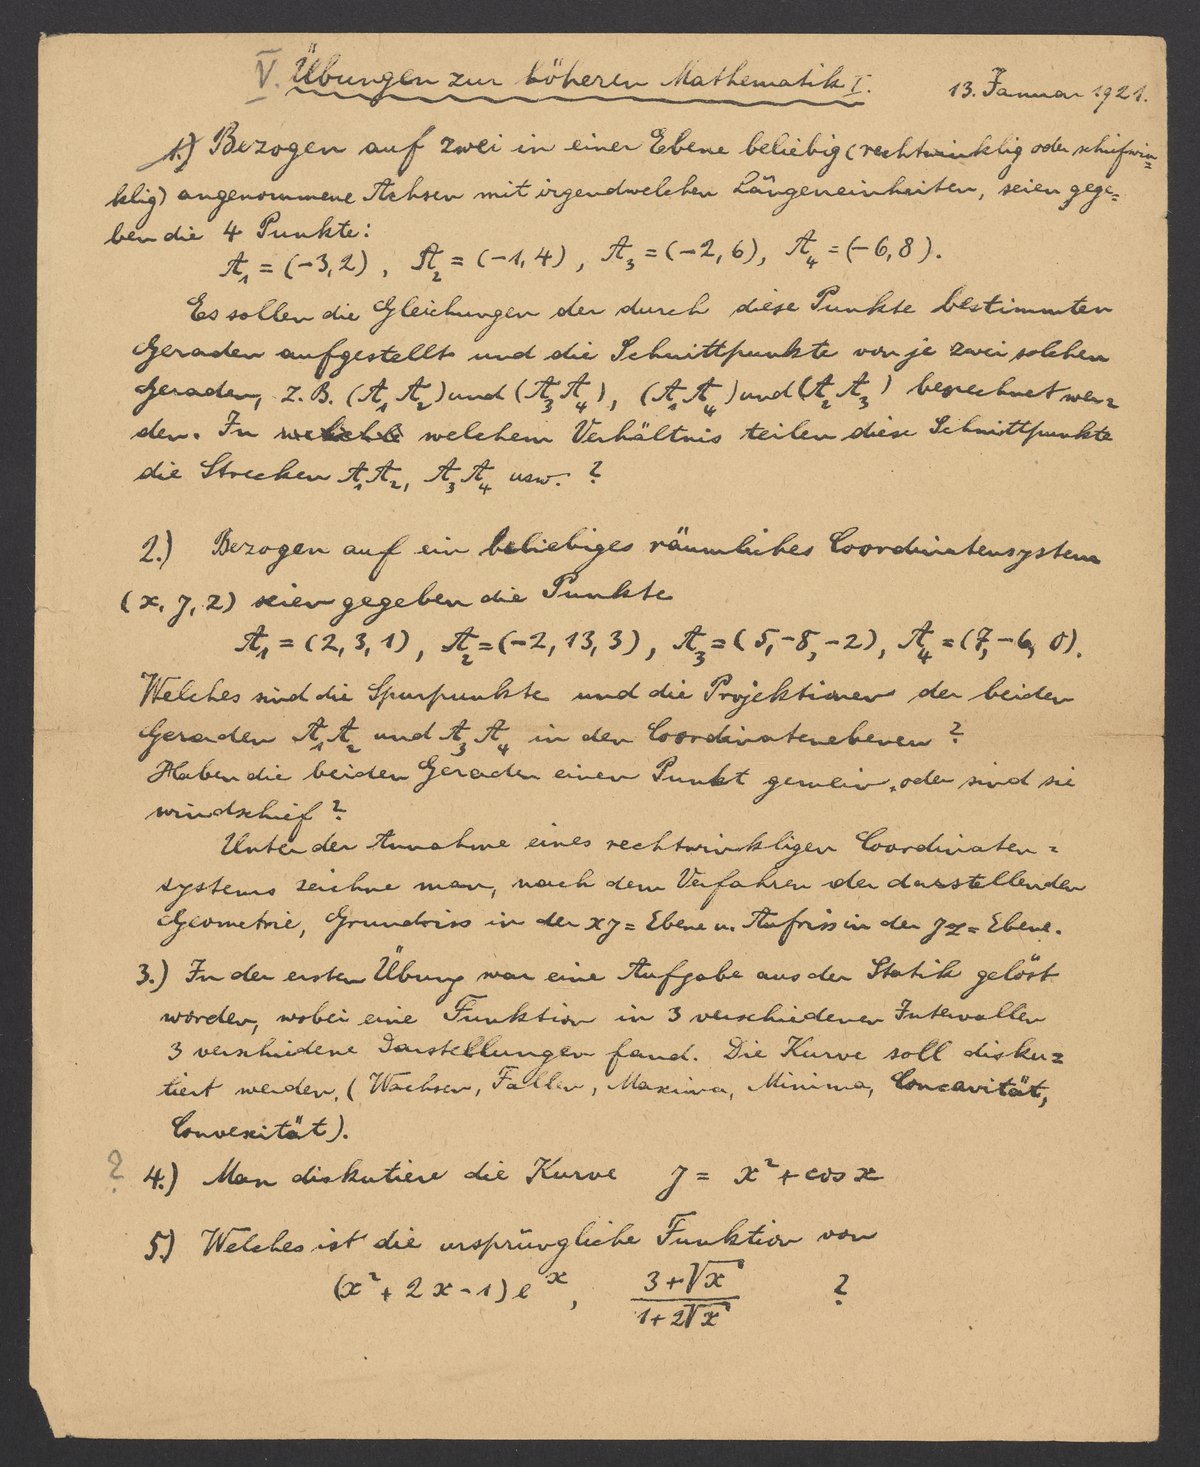 V. Übungen zur höheren Mathematik I. 13. Januar 1921.
1.) Bezogen auf zwei in einer Ebene beliebig (rechtwinklig oder schiefwin=
klig) angenommene Achsen mit irgendwelchen Längeneinheiten, seien gege=
ben die 4 Punkte:
A₁ = (-3,2), A₂ = (-1,4), A₃ = (-2,6), A₄ = (-6,8).
Es sollen die Gleichungen der durch diese Punkte bestimmten
Geraden aufgestellt und die Schnittpunkte von je zwei solchen
Geraden, z.B. (A₁A₂) und (A₃A₄), (A₁A₄) und (A₂A₃) berechnet wer=
den. In welchem Verhältnis teilen diese Schnittpunkte
die Strecken A₁A₂, A₃A₄ usw. ?
2.) Bezogen auf ein beliebiges räumliches Coordinatensystem
(x, y, z) seien gegeben die Punkte
A₁ = (2,3,1), A₂ = (-2,13,3), A₃ = (5,-8,-2), A₄ = (7,-6,0).
Welches sind die Spurpunkte und die Projektionen der beiden
Geraden A₁A₂ und A₃A₄ in den Coordinatenebenen ?
Haben die beiden Geraden einen Punkt gemein, oder sind sie
windschief ?
Unter der Annahme eines rechtwinkligen Coordinaten=
systems zeichne man, nach dem Verfahren der darstellenden
Geometrie, Grundriss in der xy=Ebene u. Aufriss in der yz=Ebene.
3.) In der ersten Übung war eine Aufgabe aus der Statik gelöst
worden, wobei eine Funktion in 3 verschiedenen Intervallen
3 verschiedene Darstellungen fand. Die Kurve soll disku=
tiert werden, (Wachsen, Fallen, Maxima, Minima, Concavität,
Convexität).
? 4.) Man diskutiere die Kurve y = x² + cos x
5.) Welches ist die ursprüngliche Funktion von
(x² + 2x - 1) eˣ, (3+√x)/(1+2√x) ?